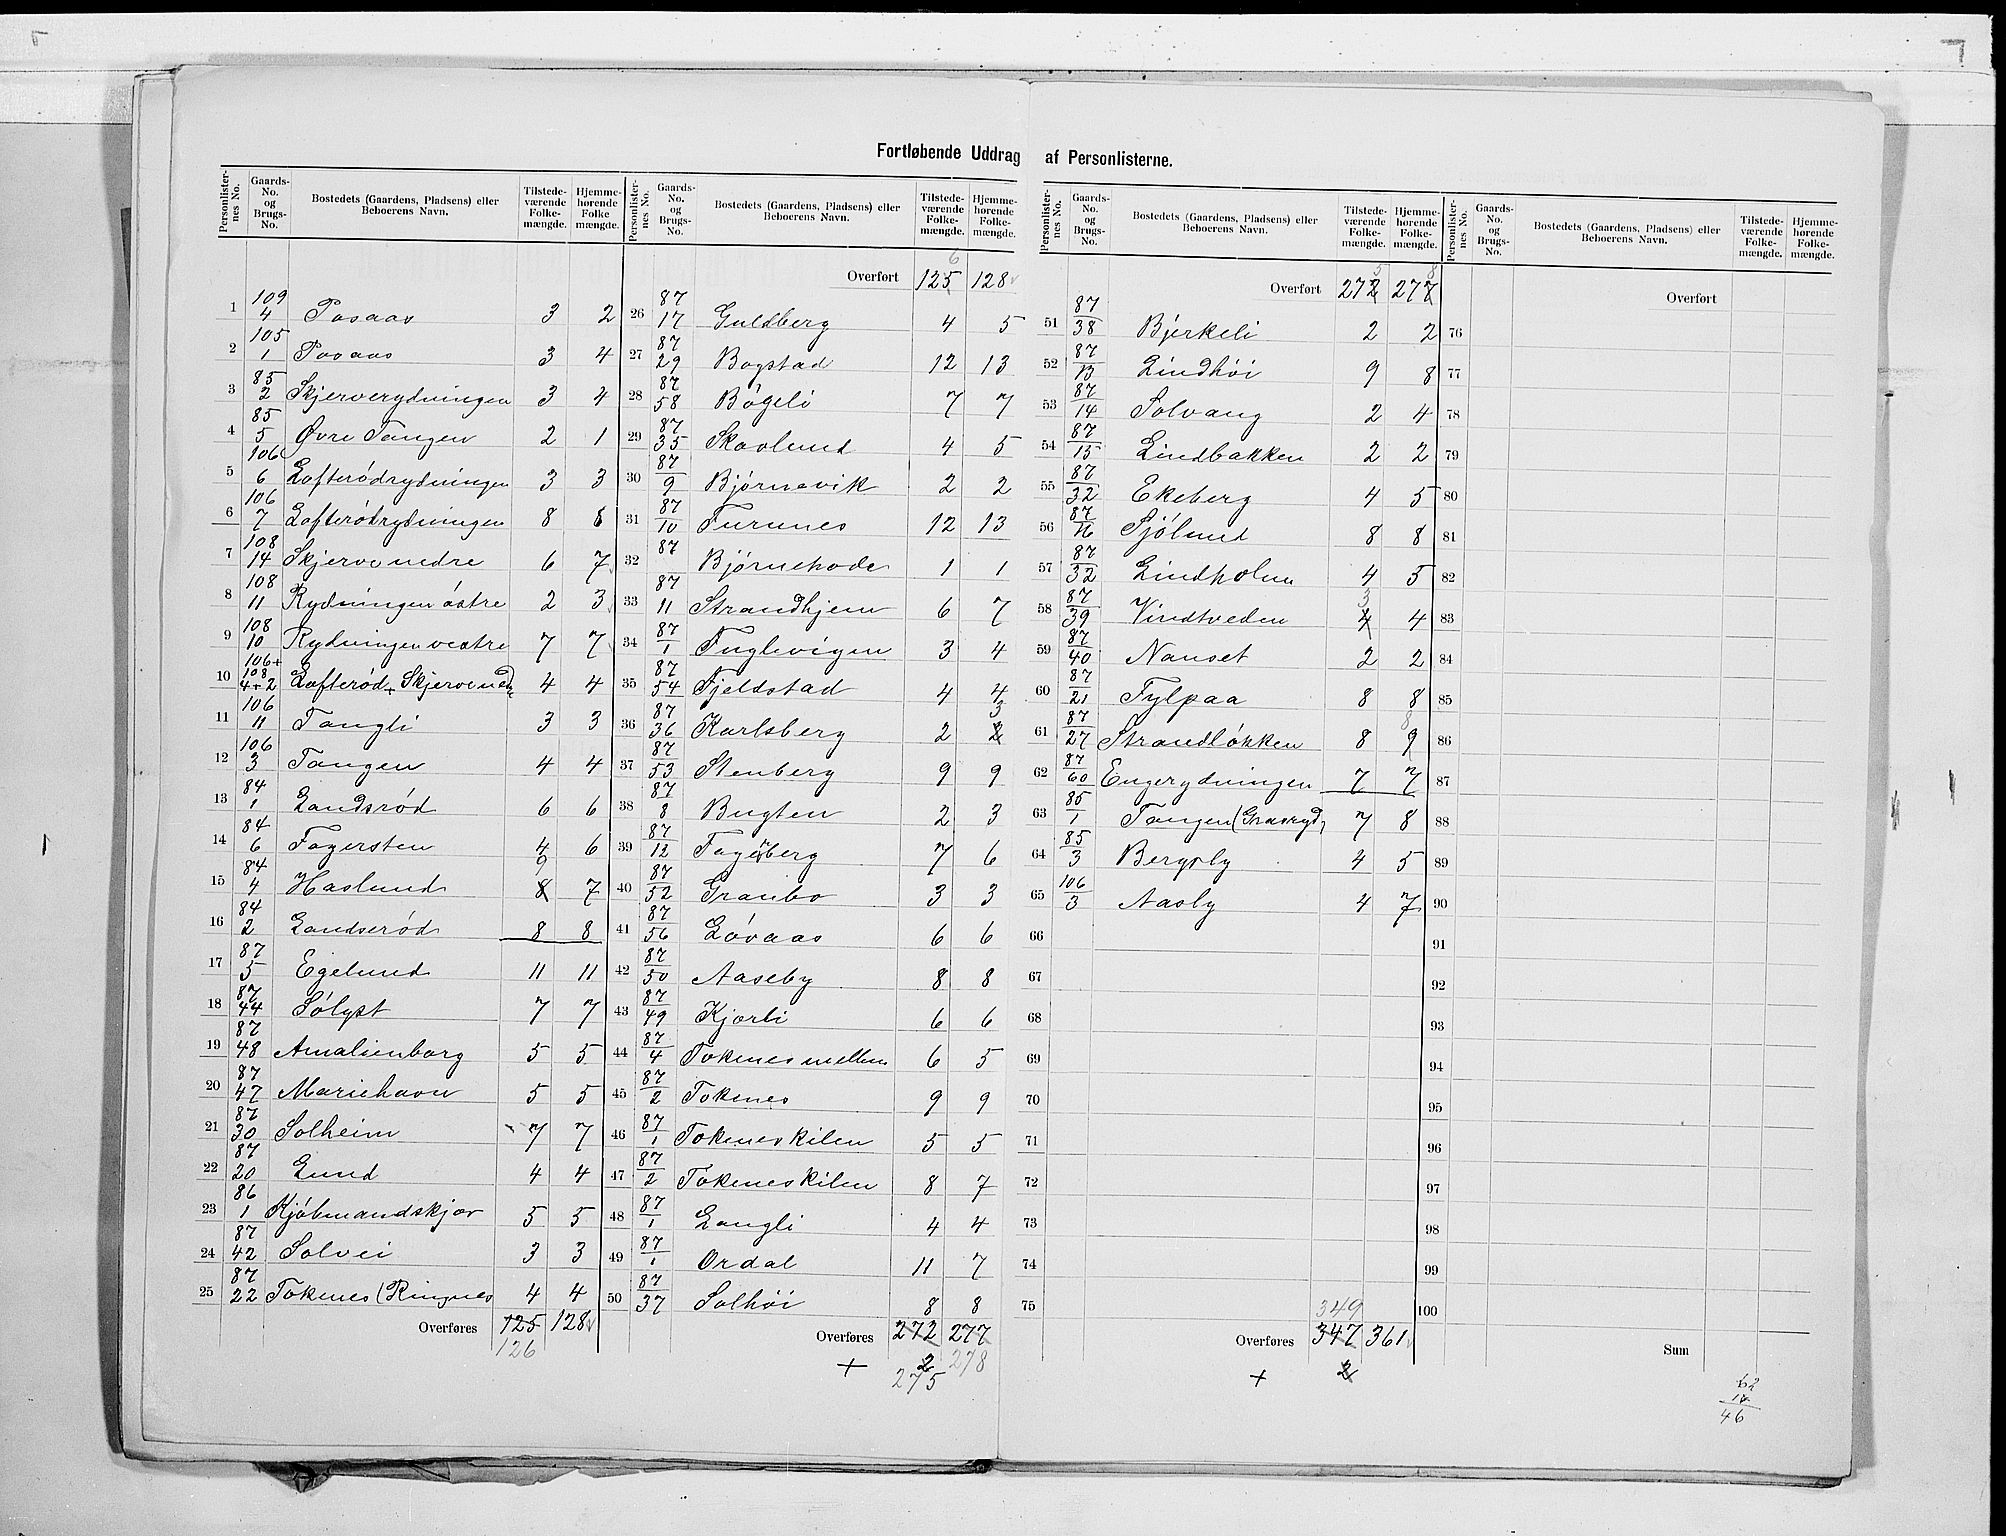 Fortløbende Uddrag af Personlisterne.
Personlisternes No. Gaards-No. og Brugs-No. Bostedets (Gaardens, Pladsens) eller Beboerens Navn. Tilstedeværende Folkemængde. Hjemmehørende Folkemængde.
1 109/4 Posaas 3 2
2 105/1 Posaas 3 4
3 85/2 Skjerverydningen 3 4
4 85/5 Øvre Tangen 2 1
5 106/6 Lofterødrydningen 3 3
6 106/7 Lofterødrydningen 8 8
7 108/14 Skjerve nedre 6 7
8 108/11 Rydningen östre 2 3
9 108/10 Rydningen vestre 7 7
10 106+108/4+2 Lofterød + Skjerve ned. 4 4
11 106/11 Tangli 3 3
12 106/3 Tangen 4 4
13 84/1 Landsrød 6 6
14 84/6 Fagersten 4 6
15 84/4 Haslund 8 9 7
16 84/2 Landserød 8 8
17 87/5 Egelund 11 11
18 87/44 Sölyst 7 7
19 87/48 Amalienborg 5 5
20 87/47 Mariehavn 5 5
21 87/30 Solheim 7 7
22 87/20 Lund 4 4
23 86/1 Kjöbmandskjær 5 5
24 87/42 Solvei 3 3
25 87/22 Tokenes (Ringnes 4 4
Overføres 125 128
126
Personlisternes No. Gaards-No. og Brugs-No. Bostedets (Gaardens, Pladsens) eller Beboerens Navn. Tilstedeværende Folkemængde. Hjemmehørende Folkemængde.
Overført 125 6 128
26 87/17 Guldberg 4 5
27 87/29 Bogstad 12 13
28 87/58 Bögeli 7 7
29 87/35 Skovlund 4 5
30 87/9 Bjørnevik 2 2
31 87/10 Furunes 12 13
32 87 Bjørnehode 1 1
33 87/11 Strandhjem 6 7
34 87/1 Fuglevigen 3 4
35 87/54 Fjeldstad 4 4
36 87/36 Karlsberg 2 2 3
37 87/53 Stenberg 9 9
38 87/8 Bugten 2 3
39 87/12 Fagerberg 7 6
40 87/52 Granbo 3 3
41 87/56 Lövaas 6 6
42 87/50 Aaseby 8 8
43 87/49 Kjærli 6 6
44 87/4 Tokenes mellem 6 5
45 87/2 Tokenes 9 9
46 87/1 Tokeneskilen 5 5
47 87/2 Tokeneskilen 8 7
48 87/1 Langli 4 4
49 87/1 Ordal 11 7
50 87/37 Solhöi 8 8
Overføres 272 277
+ 2 278
275
Personlisternes No. Gaards-No. og Brugs-No. Bostedets (Gaardens, Pladsens) eller Beboerens Navn. Tilstedeværende Folkemængde. Hjemmehørende Folkemængde.
Overført 272 5 277 8
51 87/38 Bjerkeli 2 2
52 87/13 Lindhöi 9 8
53 87/14 Solvang 2 4
54 87/15 Lindbakken 2 2
55 87/32 Ekeberg 4 5
56 87/16 Sjölund 8 8
57 87/32 Lindholm 4 5
58 87/39 Vindtveden 4 3 4
59 87/40 Nanset 2 2
60 87/21 Fylpaa 8 8
61 87/27 Strandlökken 8 9 8
62 87/60 Engerydningen 7 7
63 85/1 Tangen (Grasryd, 7 8
64 85/3 Bergsly 4 5
65 106/3 Aasly 4 7
66
67
68
69
70
71
72
73
74
75
349
Overføres 347 361
+ 2
Personlisternes No. Gaards-No. og Brugs-No. Bostedets (Gaardens, Pladsens) eller Beboerens Navn. Tilstedeværende Folkemængde. Hjemmehørende Folkemængde.
Overført
76
77
78
79
80
81
82
83
84
85
86
87
88
89
90
91
92
93
94
95
96
97
98
99
100
Sum
62
46